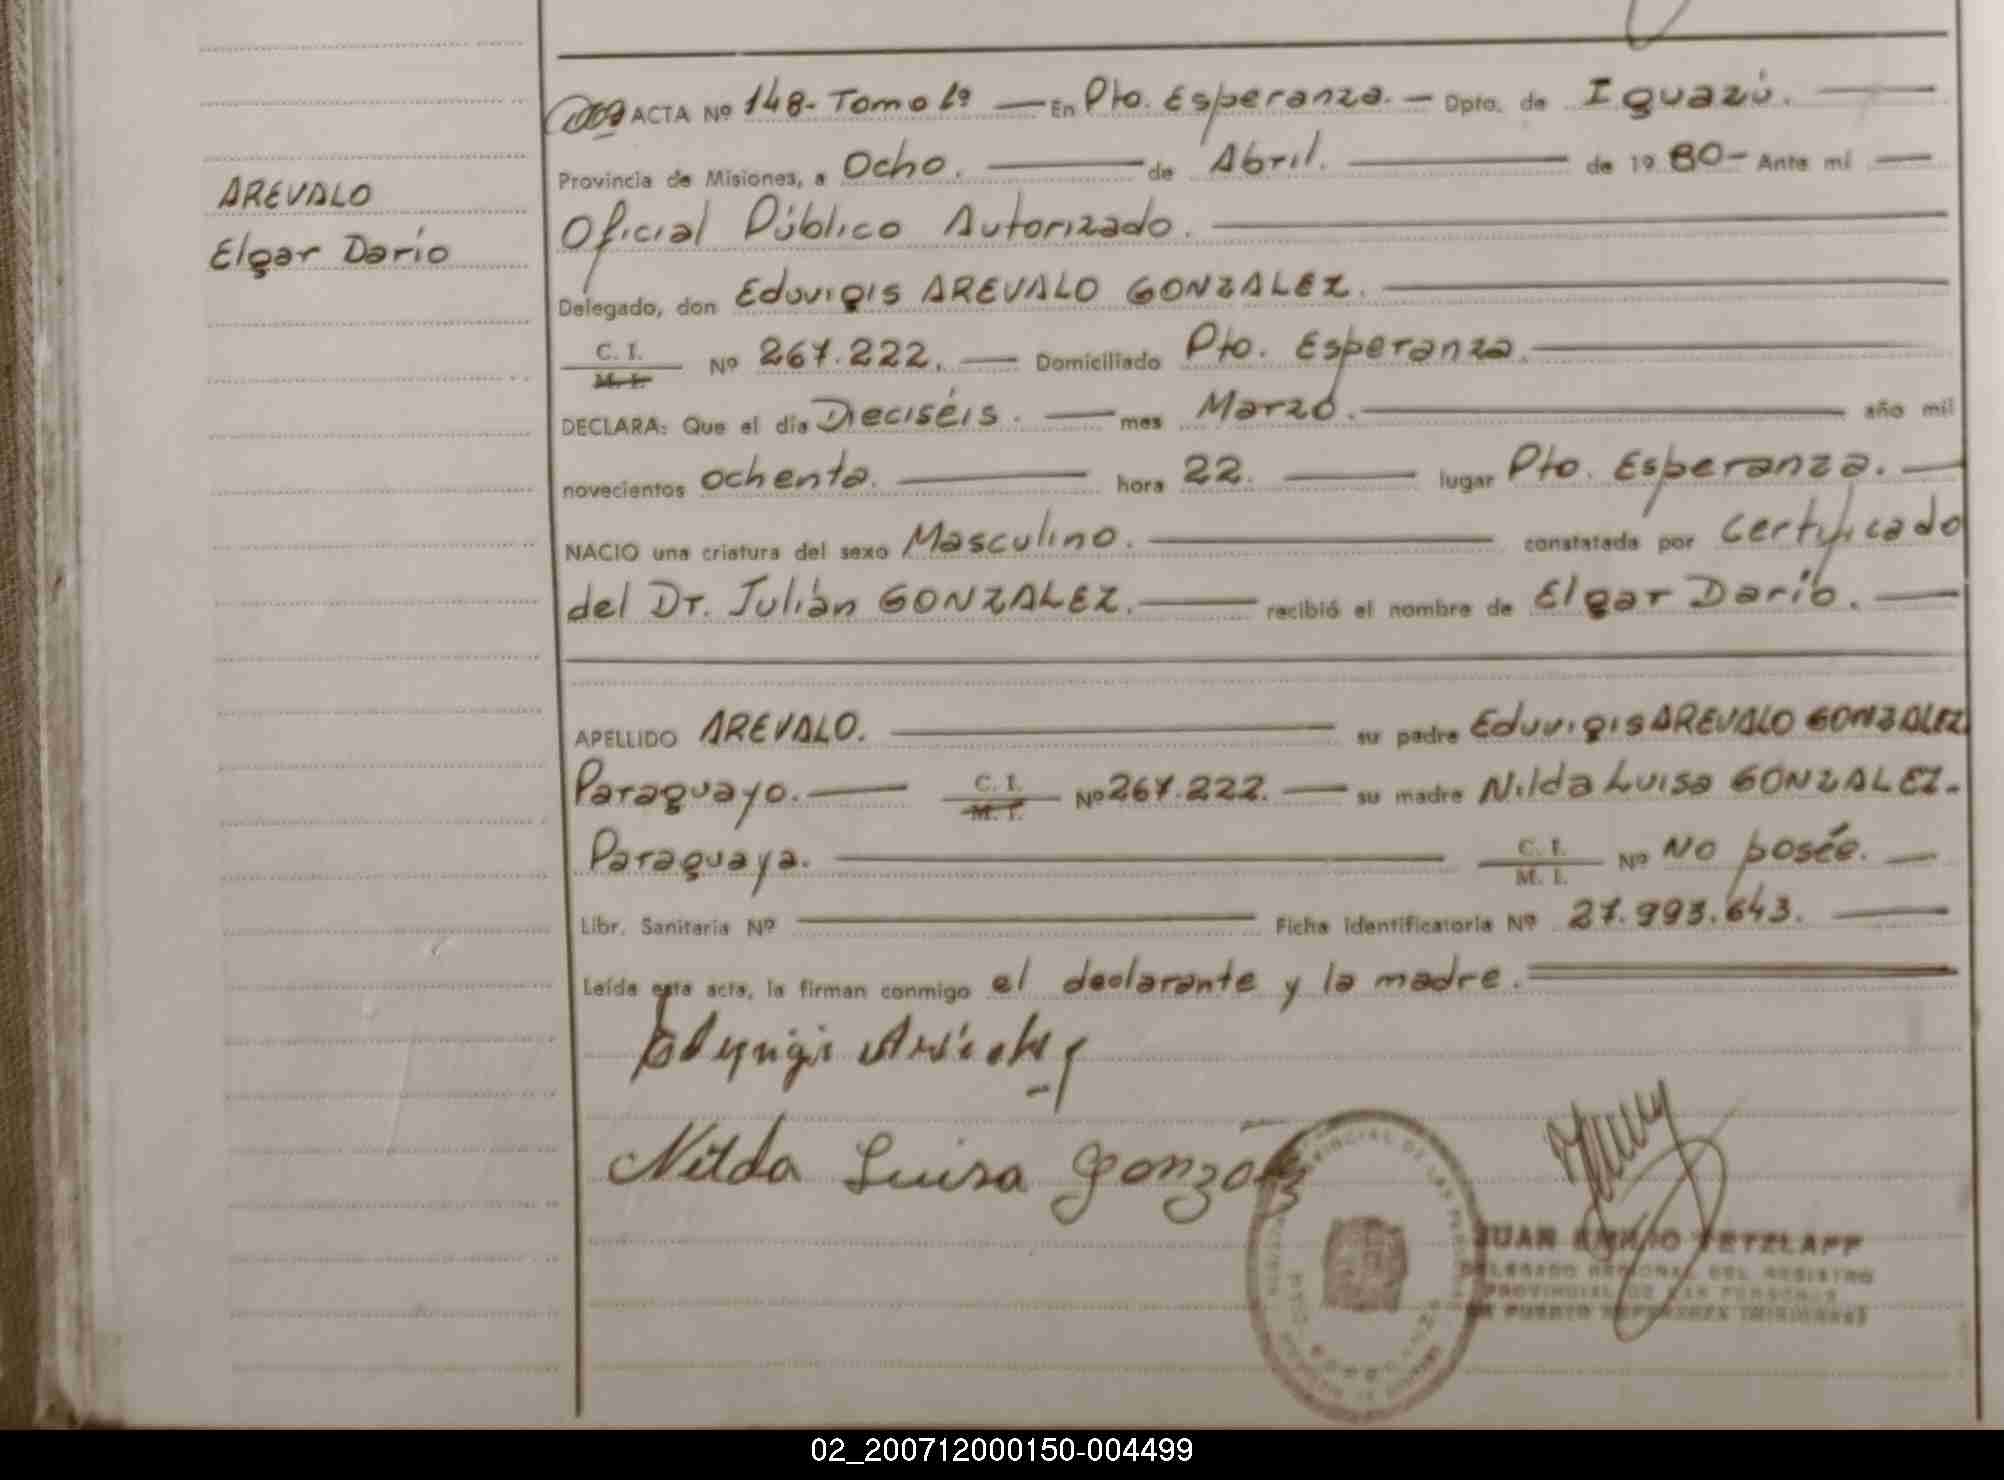 AREVALO
Elgar Darío
ACTA Nº 148- Tomo 1º — En Pto. Esperanza. — Dpto. de Iguazú. —
Provincia de Misiones, a Ocho. — de Abril. — de 19 80- Ante mí —
Oficial Público Autorizado. —
Delegado, don Eduvigis AREVALO GONZALEZ. —
C. I. M. I. Nº 267.222. — Domiciliado Pto. Esperanza. —
DECLARA: Que el día Dieciséis. — mes Marzo. — año mil
novecientos ochenta. — hora 22. — lugar Pto. Esperanza. —
NACIO una criatura del sexo Masculino. — constatada por Certificado
del Dr. Julián GONZALEZ. — recibió el nombre de Elgar Darío. —
APELLIDO AREVALO. — su padre Eduvigis AREVALO GONZALEZ
Paraguayo. — C. I. M. I. Nº 267.222. — su madre Nilda Luisa GONZALEZ.-
Paraguaya. — C. I. M. I. Nº No poseé. —
Libr. Sanitaria Nº — Ficha identificatoria Nº 27.993.643. —
Leída esta acta, la firman conmigo el declarante y la madre. —
Nilda Luisa Gonzalez
JUAN EMILIO TETZLAFF
DELEGADO REGIONAL DEL REGISTRO
PROVINCIAL DE LAS PERSONAS
PUERTO ESPERANZA (MISIONES)
02_200712000150-004499